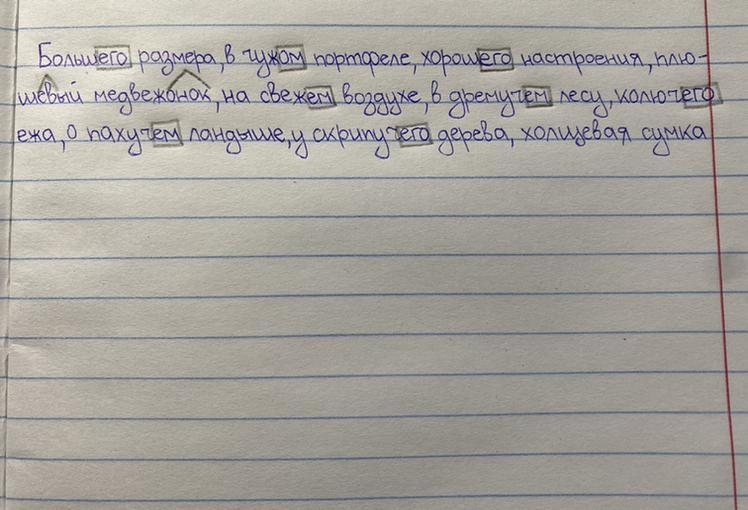 Большего размера, в чужом портфеле, хорошего настроения, плю-
шевый медвежонок, на свежем воздухе, в дремучем лесу, колючего
ежа, о пахучем ландыше, у скрипучего дерева, холщевая сумка